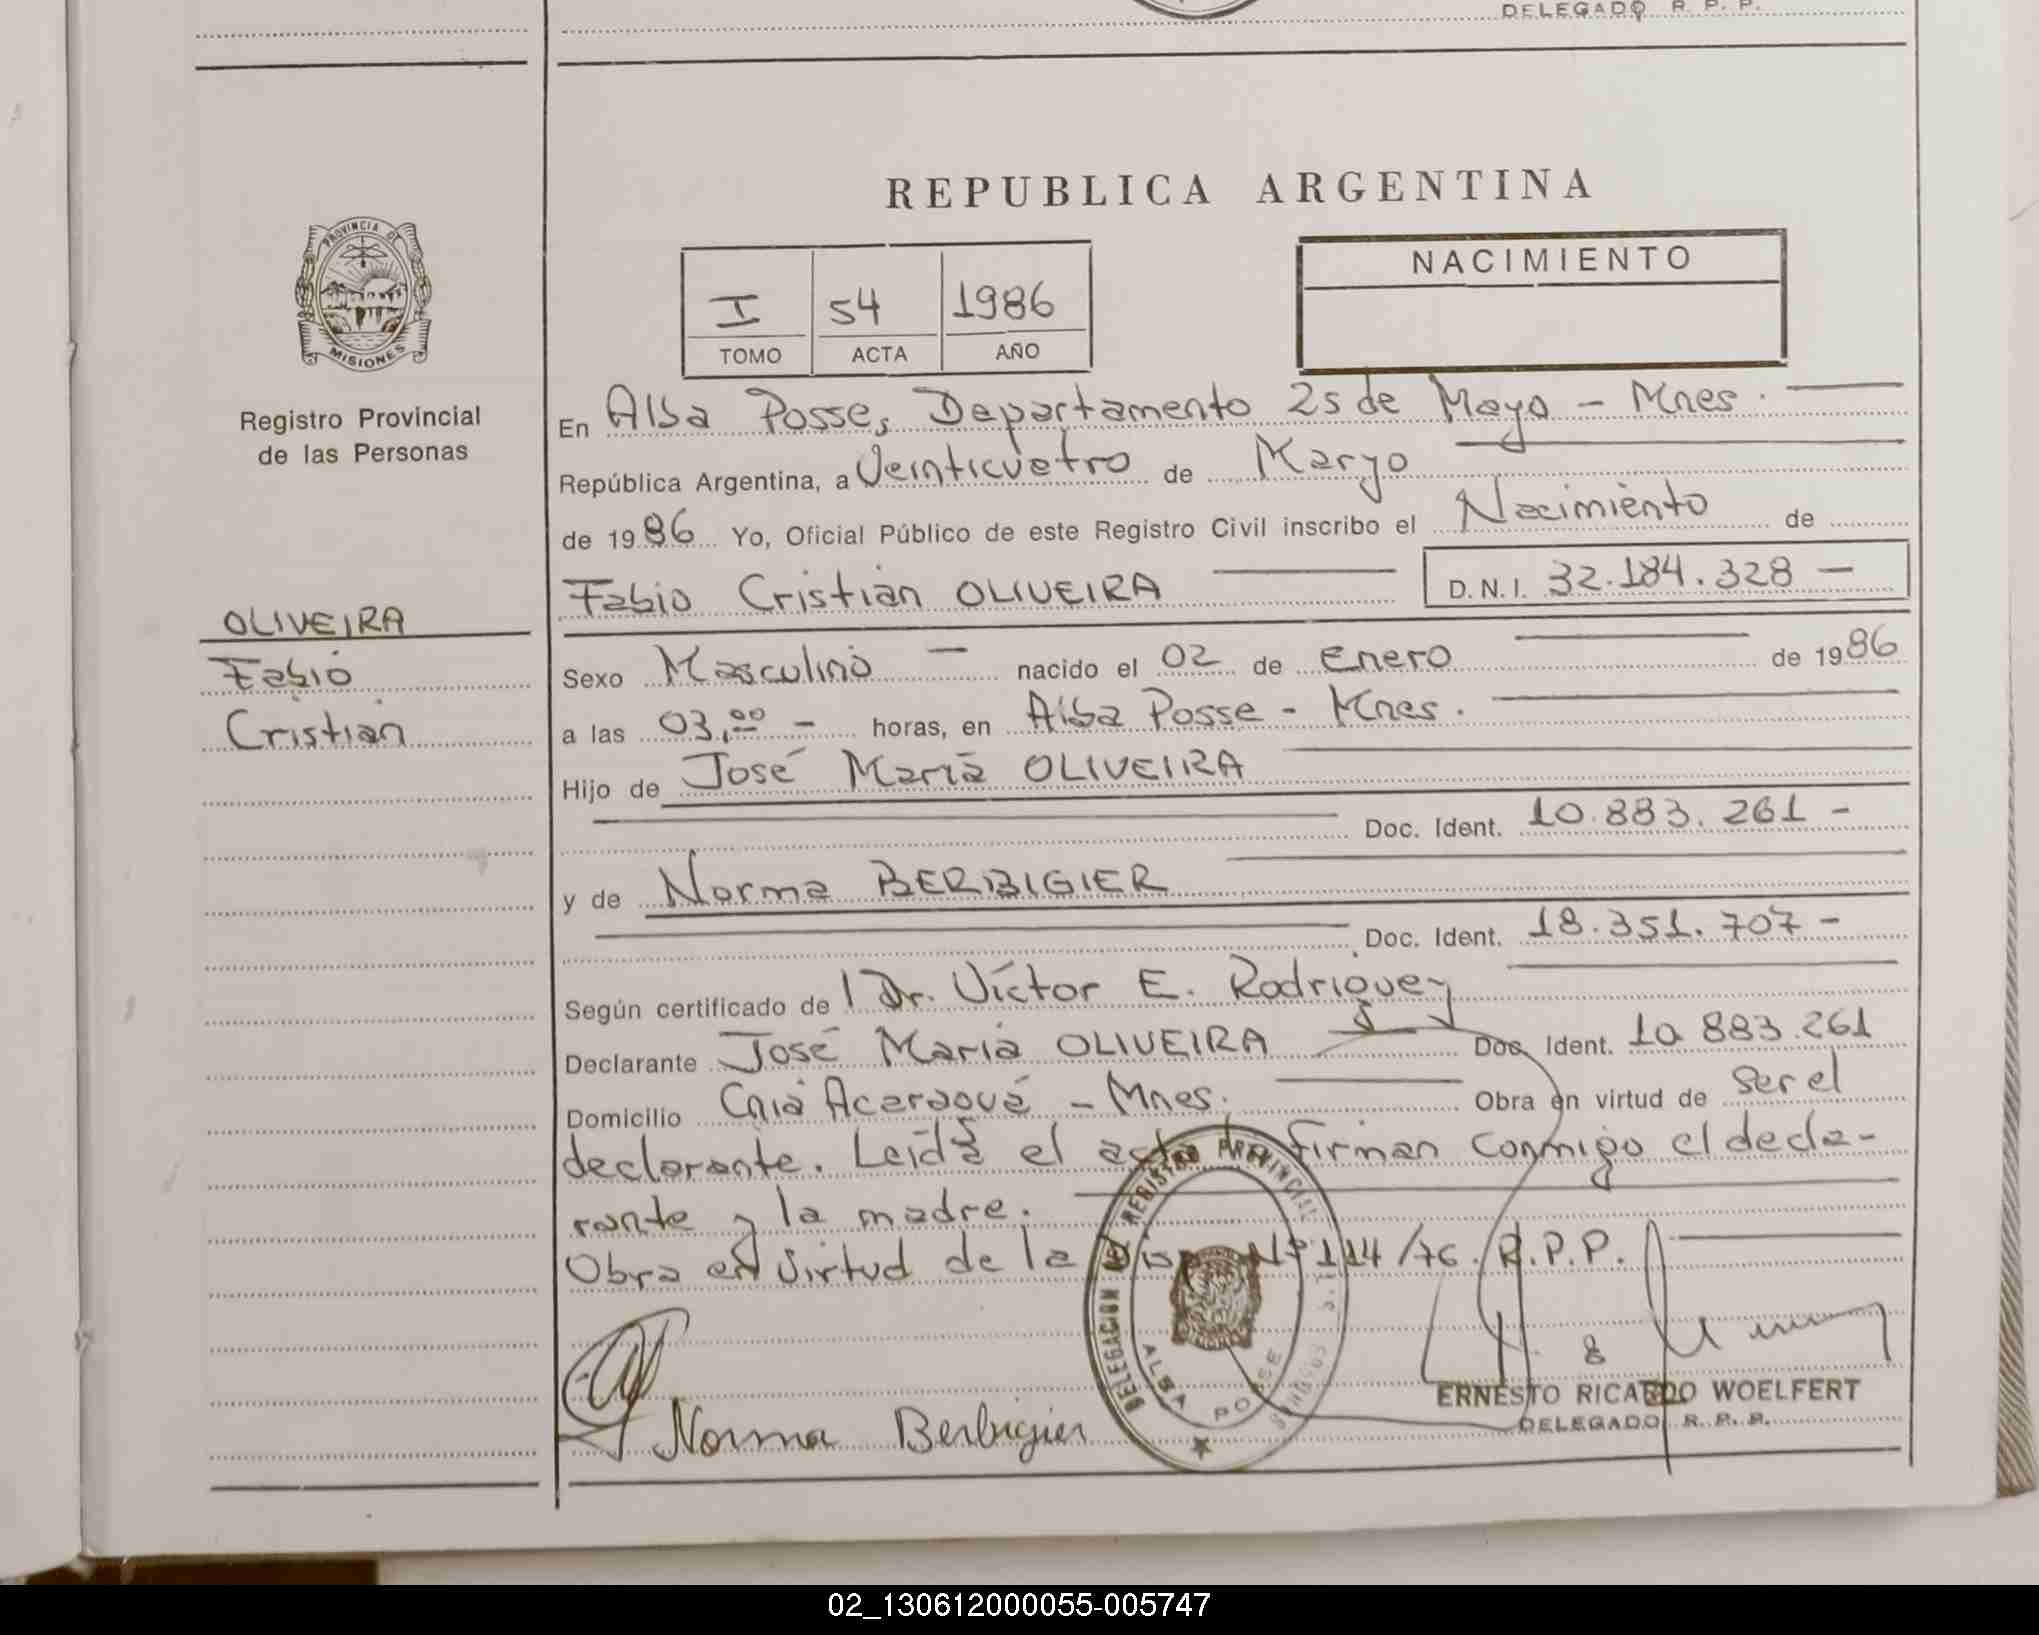 DELEGADO R. P. P.
REPUBLICA ARGENTINA
PROVINCIA DE
MISIONES
Registro Provincial
de las Personas
I 54 1986
TOMO ACTA AÑO
NACIMIENTO
En Alba Posse, Departamento 25 de Mayo - Mnes.
República Argentina, a Veinticuatro de Marzo
de 1986 Yo, Oficial Público de este Registro Civil inscribo el Nacimiento de
Fabio Cristian OLIVEIRA D.N.I. 32.184.328 —
OLIVEIRA
Fabio
Cristian
Sexo Masculino — nacido el 02 de enero de 1986
a las 03,00 - horas, en Alba Posse - Mnes.
Hijo de José María OLIVEIRA
Doc. Ident. 10.883.261 -
y de Norma BERBIGIER
Doc. Ident. 18.351.707 -
Según certificado de Dr. Víctor E. Rodriguez
Declarante José María OLIVEIRA Doc. Ident. 10 883.261
Domicilio Acaraguá - Mnes. Obra en virtud de ser el
declarante. Leída el acta firman conmigo el decla-
rante y la madre.
Obra en virtud de la Disp Nº 114/76. R.P.P.
DELEGACION DEL REGISTRO PROVINCIAL
ALBA POSSE
Norma Berbigier
ERNESTO RICARDO WOELFERT
DELEGADO R. P. P.
02_130612000055-005747